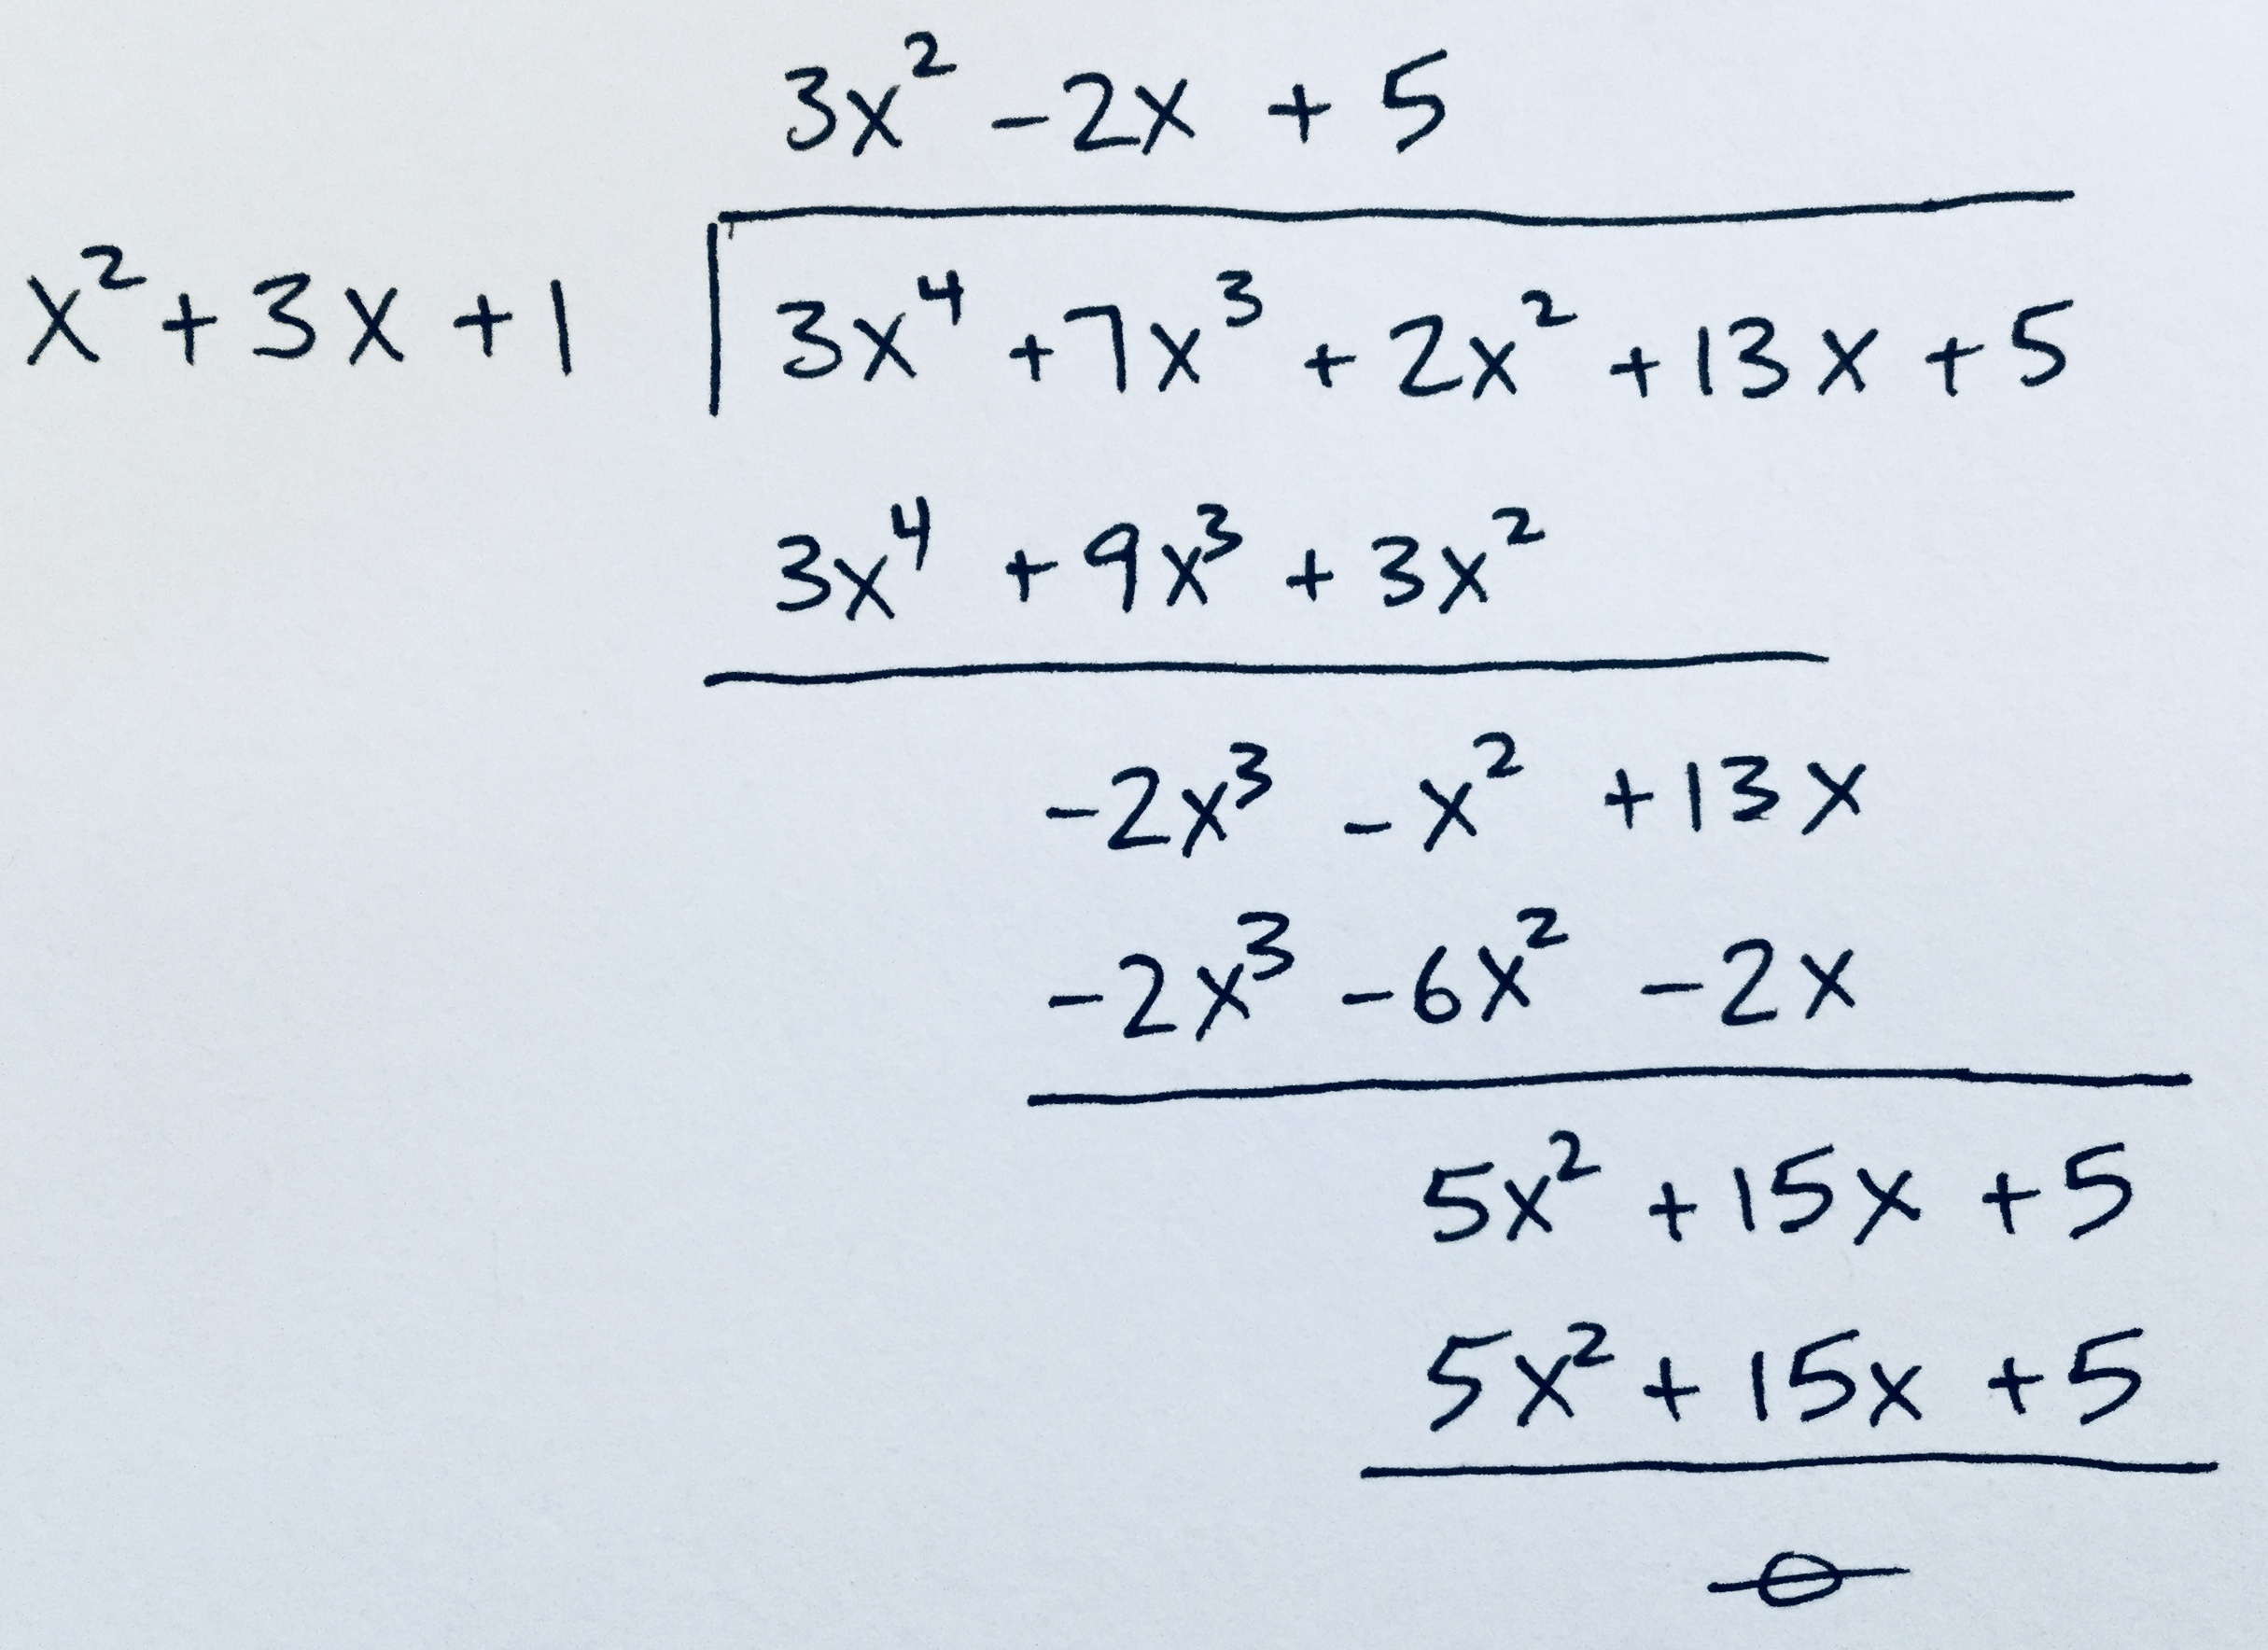 3x² - 2x + 5
x² + 3x + 1 3x⁴ + 7x³ + 2x² + 13x + 5
3x⁴ + 9x³ + 3x²
-2x³ - x² + 13x
-2x³ - 6x² - 2x
5x² + 15x + 5
5x² + 15x + 5
0